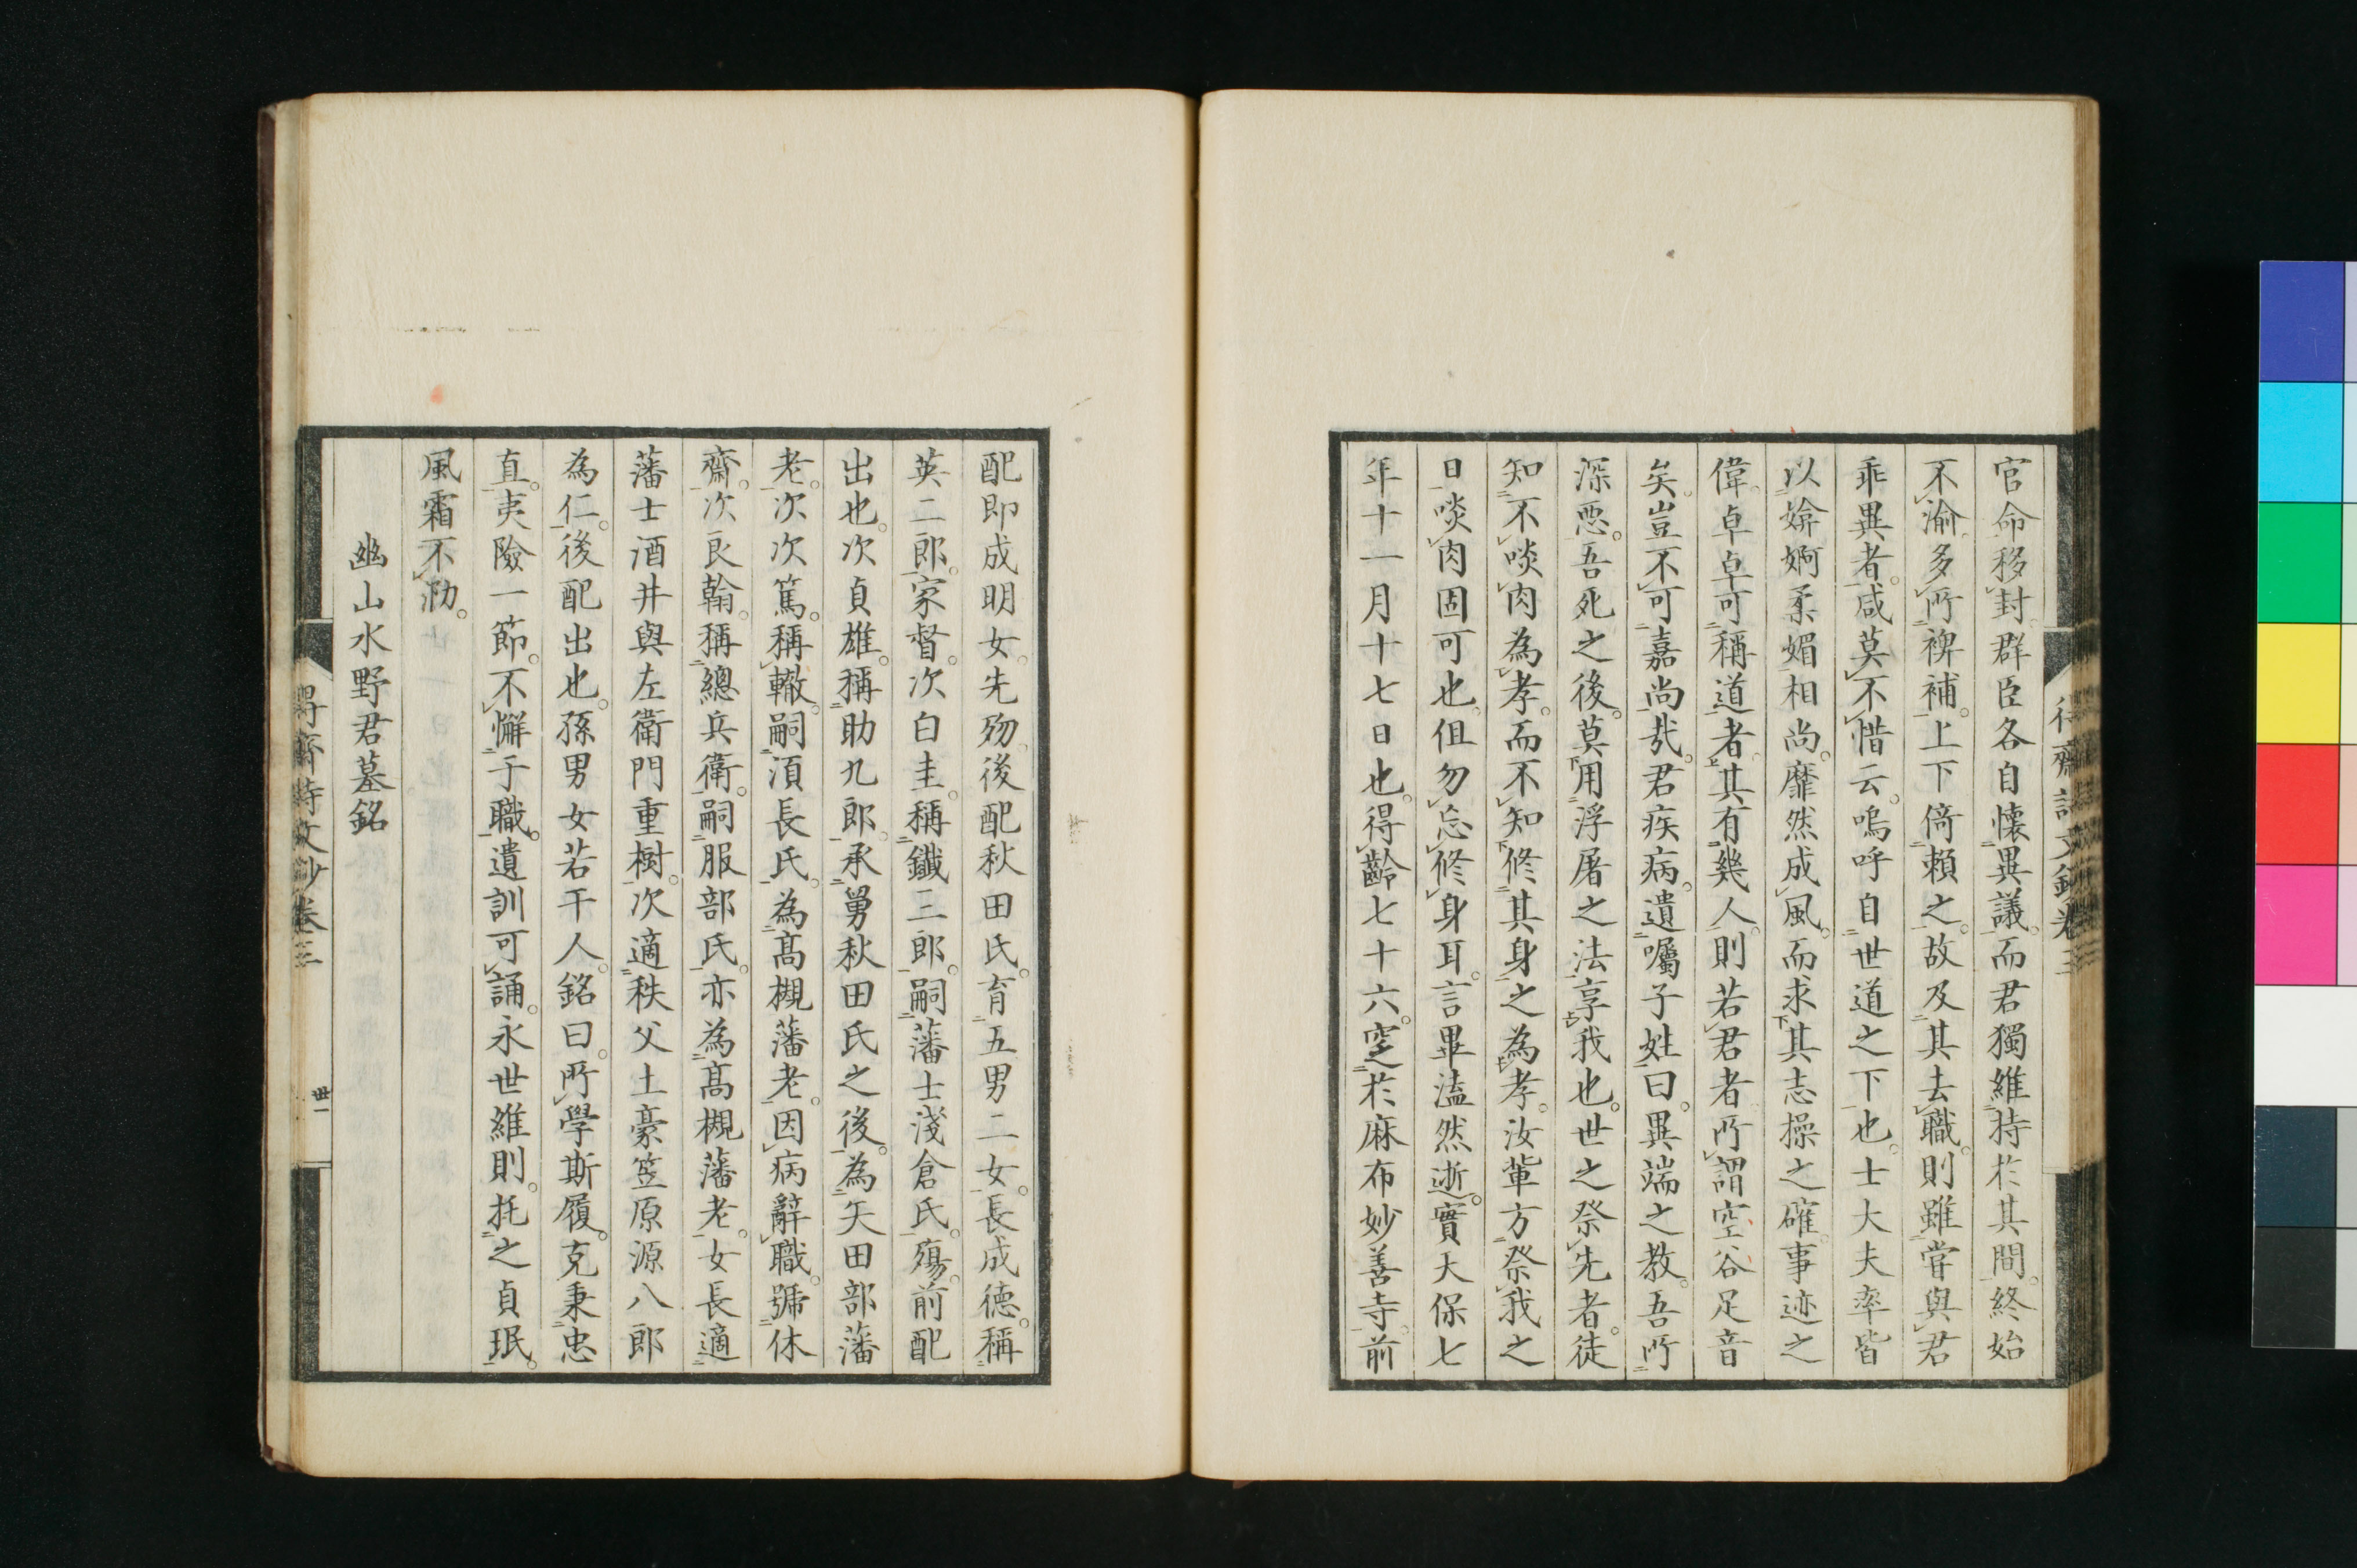 官命移封。群臣各自懷異議。而君獨維持於其間。終始
不渝。多所裨補。上下倚賴之。故及其去職。則雖嘗與君
乖異者。咸莫不惜云。嗚呼自世道之下也。士大夫率皆
以媕婀柔媚相尚。靡然成風。而求其志操之確。事迹之
偉。卓卓可稱道者。其有幾人。則若君者所謂空谷足音
矣。豈不可嘉尚哉。君疾病。遺囑子姓曰。異端之教。吾所
深惡。吾死之後。莫用浮屠之法享我也。世之祭先者。徒
知不啖肉為孝。而不知修其身之為孝。汝輩方祭我之
日。啖肉固可也。但勿忘修身耳。言畢溘然逝。實天保七
年十一月十七日也。得齡七十六。窆於麻布妙善寺。前
配即成明女。先歿。後配秋田氏。育五男二女。長成德。稱
英二郎。家督。次白圭。稱鐵三郎。嗣藩士淺倉氏。殤。前配
出也。次貞雄。稱助九郎。承舅秋田氏之後。為矢田部藩
老。次次篤。稱轍。嗣湏長氏。為髙槻藩老。因病辭職。號休
齋。次良翰。稱總兵衛。嗣服部氏。亦為髙槻藩老。女長適
藩士酒井與左衛門重樹。次適秩父土豪笠原源八郎
為仁。後配出也。孫男女若干人。銘曰。所學斯履。克秉忠
直。夷險一節。不懈于職。遺訓可誦。永世維則。托之貞珉。
風霜不泐。
幽山水野君墓銘
齋詩文鈔卷三
卅一